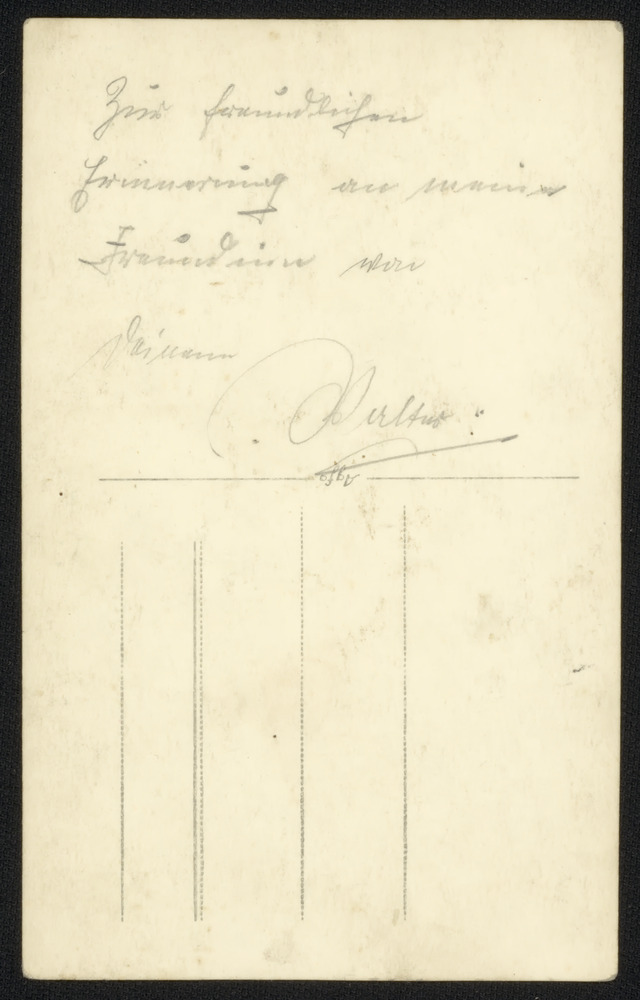 Zur freundlichen
Erinnerung an meine
Freundinn von
Deinem
Walter.
Agfa